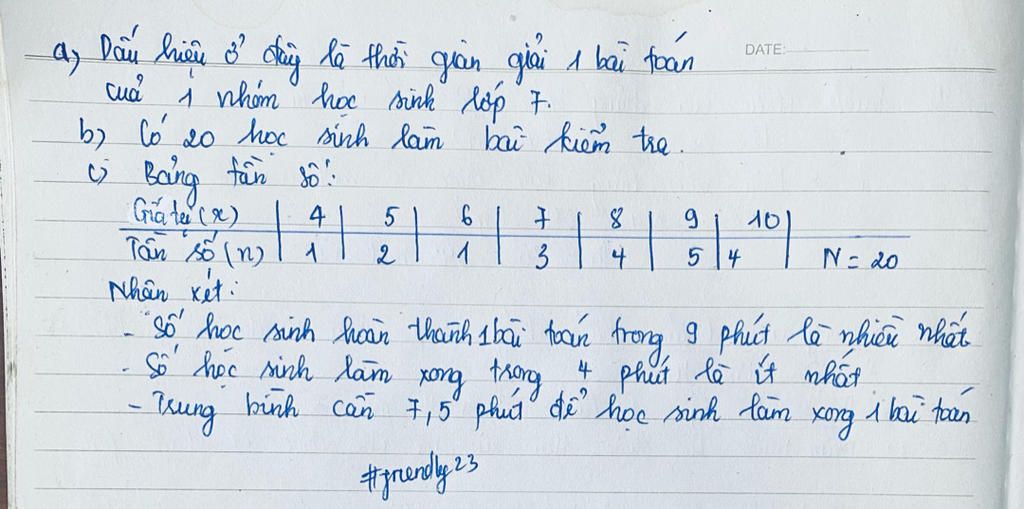 a) Dấu hiệu ở đây là thời gian giải 1 bài toán
DATE:
của 1 nhóm học sinh lớp 7.
b) Có 20 học sinh làm bài kiểm tra.
c) Bảng tần số:
Giá trị (x) | 4 | 5 | 6 | 7 | 8 | 9 | 10 |
Tần số (n) | 1 | 2 | 1 | 3 | 4 | 5 | 4 | N = 20
Nhận xét:
- Số học sinh hoàn thành 1 bài toán trong 9 phút là nhiều nhất
- Số học sinh làm xong trong 4 phút là ít nhất
- Trung bình cần 7,5 phút để học sinh làm xong 1 bài toán
#friendly23